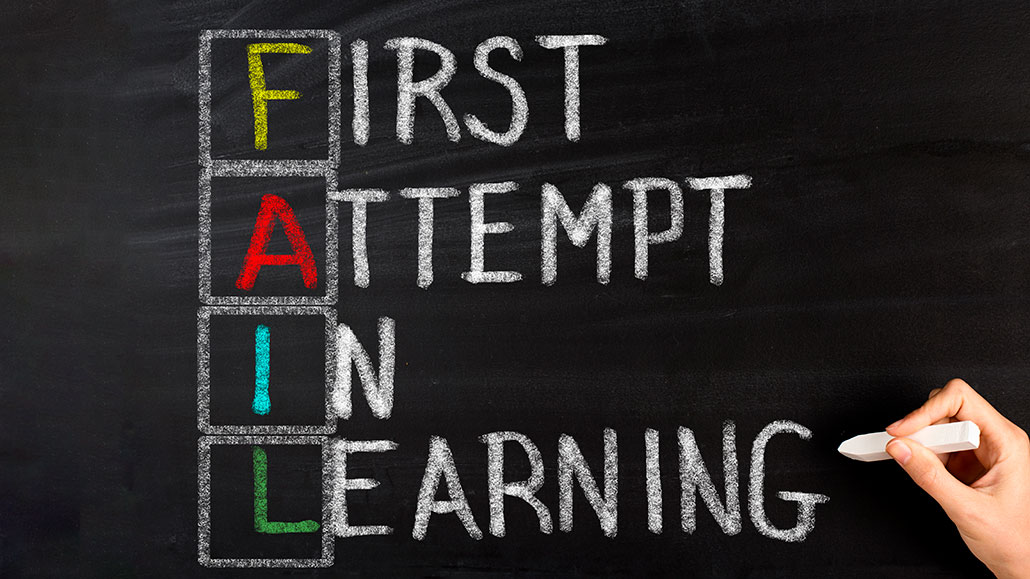 FIRST
ATTEMPT
IN
LEARNING